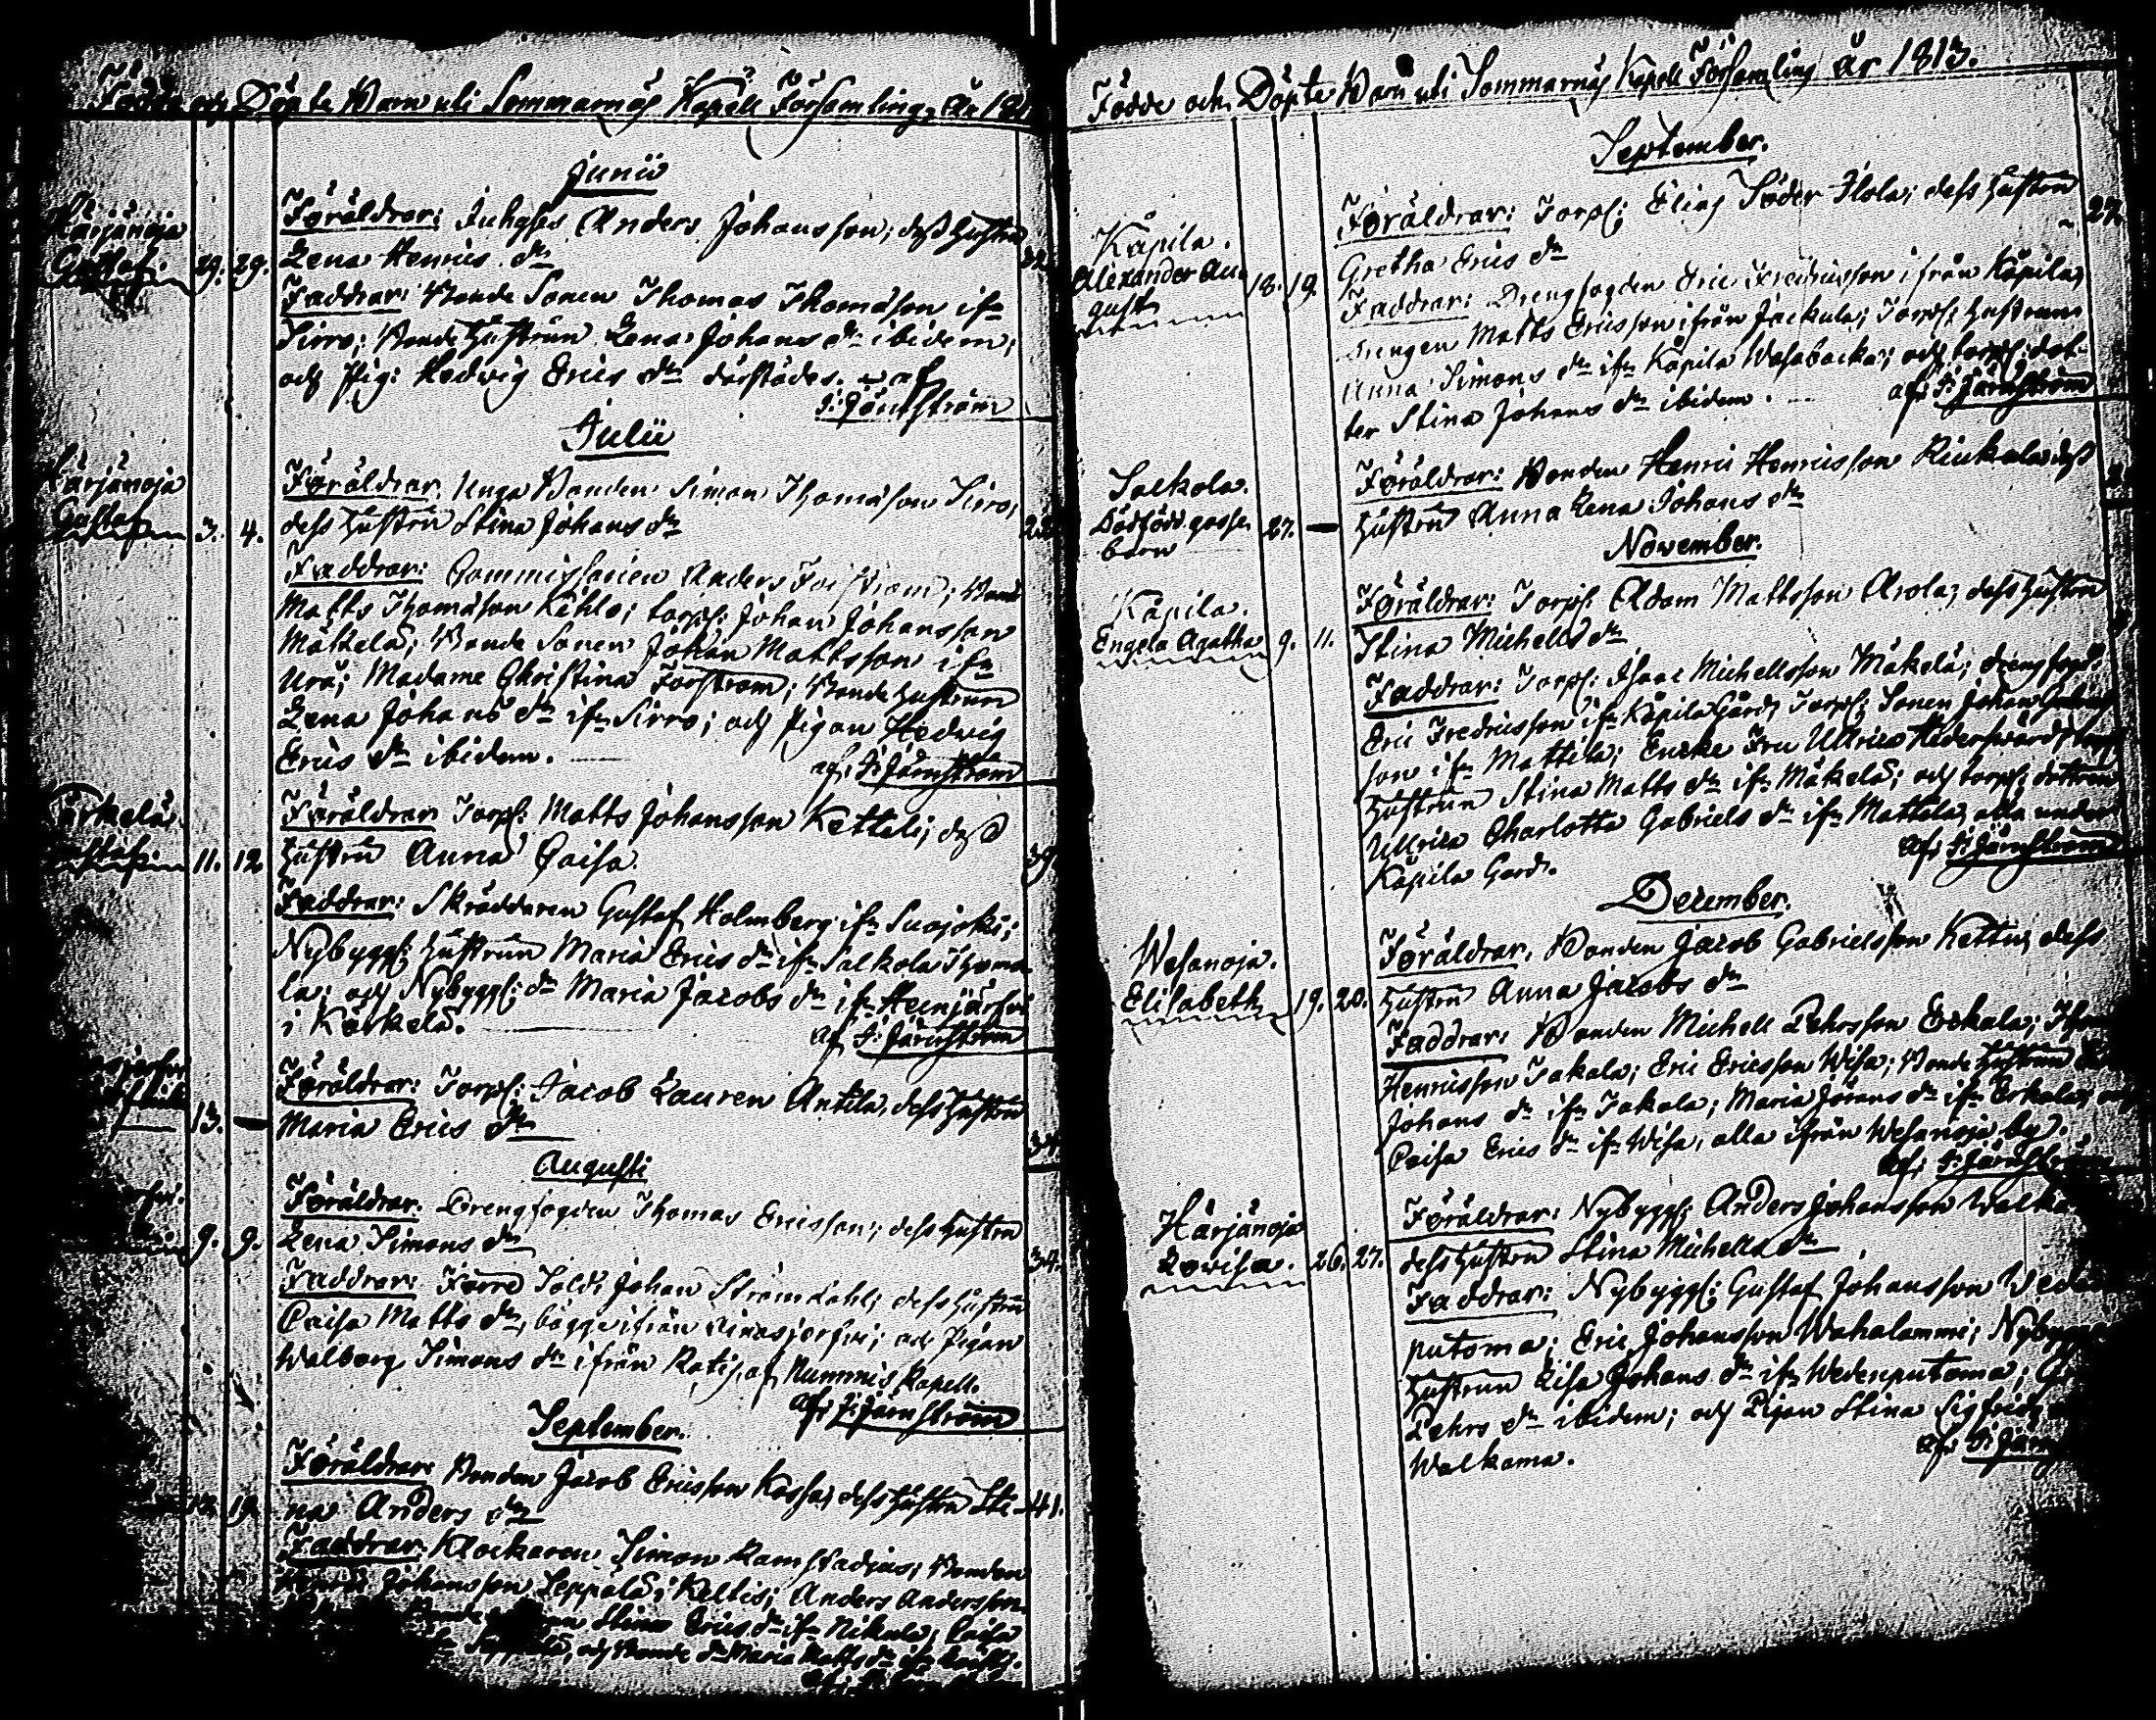 Födde och Döpte Barn uti Sommarnäs Kapell Församling, År 181
Junii
Härjänoja
Gustaf. 29. 29.
Föräldrar: Anders Johansson; dess Hustru
Lena Henrics dr
Faddrar: Bonde Sonen Thomas Thomasson ifn
Sirro; Bonde Hustrun Lena Johans dr ibidem;
och Pig: Hedvig Erics dr därstädes.
af: J: Järnström
Julii
Härjänoja
Gustaf 3. 4.
Föräldrar. Unga Bonden Simon Thomasson Sirro,
dess Hustru Stina Johans dr
Faddrar: Commissarien Anders Forström; Bond
Matts Thomasson Kihlo; torps: Johan Johansson
Mäkelä; Bonde Sonen Johan Mattsson ifn
Ura; Madame Christina Forström; Bonde Hustrun
Lena Johans dr ifn Sirro; och Pigan Hedvig
Erics dr ibidem.
af: J: Järnström
Kärkelä
Gustaf. 11. 12
Föräldrar Torps: Matts Johansson Ketteli; dess
Hustru Anna Caisa. 39
Faddrar: Skräddaren Gustaf Holmberg ifn Suojoki;
Nybyggs: Hustrun Maria Erics dr ifn Salkola Thoma
la; och Nybyggs: dr Maria Jacobs dr ifn Heinjärfvi
i Kärkelä.
af J: Järnström
13. —
Föräldrar: Torps: Jacob Lauren Antila, dess Hustru
Maria Erics dr
Augusti
9. 9.
Föräldrar. Drengfogden Thomas Ericsson; dess Hustru
Lena Simons dr 34.
Faddrar: Förre Sold: Johan Strömdahl; dess Hustru
Caisa Matts dr, bägge ifrån; och Pigan
Walborg Simons dr ifrån af Nummis Kapell.
af: J: Järnström
September.
Föräldrar: Bonden Jacob Ericsson Kassa, dess Hustru Sti- 41.
na Anders dr
Faddrar. Klockaren Simon; Bonden
Henric Johansson Leppälä, i Keltis; Anders Andersson
Stina Erics dr ifn Nikula; Caisa
och Bonde dr Maria Matts dr ifn
Födde och Döpte Barn uti Sommarnäs Kapell Församling år 1813.
September.
Käpila.
Alexander Au-
gust 18. 19.
Föräldrar: Torps: Elias Söder Ilola; dess Hustru 27.
Gretha Erics dr
Faddrar: Drengfogden Eric Fredricsson ifrån Käpila,
Drengen Matts Ericsson ifrån Jackula; Torps: Hustrun
Anna Simons dr ifn Käpila Wesabacka; och torps: dot-
ter Stina Johans dr ibidem.
af: J: Järnström
Salkola.
Dödfödd gosse
barn 27. —
Föräldrar: Bonden Henric Henricsson Rinkala, dess
Hustru Anna Lena Johans dr
November.
Käpila.
Engela Agatha 9. 11.
Föräldrar: Torps: Adam Mattsson Arola; dess Hustru
Stina Michells dr
Faddrar: Torps: Isaac Michellsson Mäkelä; drengfogd:
Eric Fredricsson ifn Käpila Gård, Torps: Sonen Johan Gabriels
son ifn Mattila; Encke Fru Ullrica
Hustrun Stina Matts dr ifn Mäkelä; och torps: dottren
Ullrica Charlotta Gabriels dr ifn Mattila, alla under
Käpila Gård.
af: J: Järnström
December.
Wesanoja.
Elisabeth 19. 20.
Föräldrar, Bonden Jacob Gabrielsson Kettu, dess
Hustru Anna Jacobs dr
Faddrar: Bonden Michell Pehrsson Erkala;
Henricsson Jakala; Eric Ericsson Wisa; Bonde Hustrun
Johans dr ifn Jakala; Maria Jörans dr ifn Erkala;
Caisa Erics dr ifn Wisa, alla ifrån Wesanoja by.
af: J: Järnström
Härjänoja
Lovisa. 26. 27.
Föräldrar: Nybyggs: Anders Johansson Walka
dess Hustru Stina Michells dr
Faddrar: Nybyggs: Gustaf Johansson Weden
putoma; Eric Johansson Wahalammi; Nybygg
Hustrun Lisa Johans dr ifn Wedenputoma;
Pehrs dr ibidem; och Pigan Stina Sigfrids
Walkama.
af: J: Järn